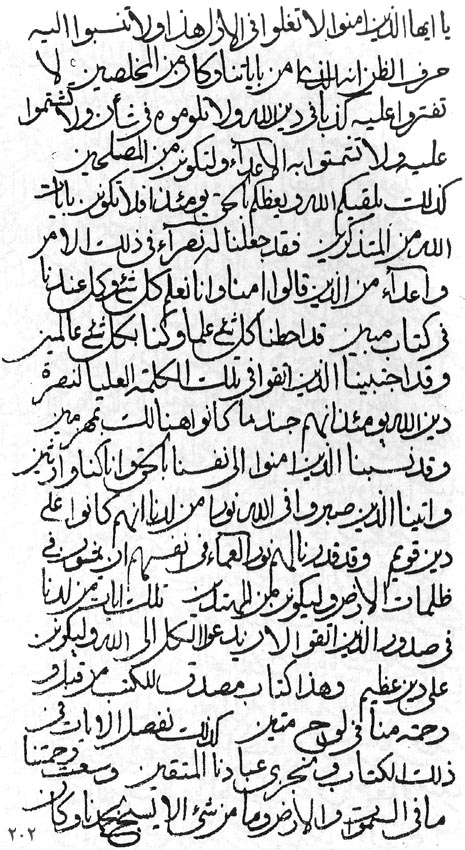 يا ايها الذين امنوا لا تغلوا فى الامر هذا ولا تنسبوا اليه
حرف الظن انه الذى امن باياتنا وكان من المخلصين لا
تفتروا عليه كذبا فى دين الله ولا تلوموه فى شأن ولا تشتموا
عليه ولا تشمتوا به الاعداء ولتكونن من المصلحين
كذلك يلقيكم الله ويعظكم بالحق يومئذ افلا تكونن بايات
الله من المتذكرين فقد جعلنا له نصرآء فى ذلك الامر
واعدآء من الذين قالوا امنا وانا نعلم كل شئ وكل عندنا
فى كتاب مبين قد احطنا كل شئ علما وكنا بكل شئ عالمين
وقد اجتبينا الذين اتقوا فى تلك الكلمة العليا لنصرة
دين الله يومئذ انهم جند ما كانوا هنالك بمهزمين
وقد نسبنا الذين امنوا الى نفسنا بالحق وانا كنا وارثين
واتينا الذين صبروا فى الله نورا من لدنا انهم كانوا على
دين قويم وقد قدرنا لهم نور العماء فى انفسهم ان يمشون فى
ظلمات الارض وليكونن من المهتدين تلك ايات من لدنا
فى صدور الذين اتقوا لان يدعوا الكل الى الله وليكونن
على دين عظيم وهذا كتاب مصدق للكتب من قبل و
رحمة منا فى لوح متين كذلك نفصل الايات فى
ذلك الكتاب ونجزى عبادنا المتقين وسعت رحمتنا
ما فى السموات والارض وما من شئ الا يسبح بحمدنا وكان
٢٠٢